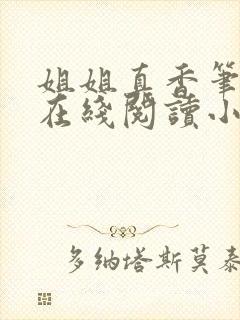 姐姐真香筆
在綫閱讀小
多纳塔斯莫泰